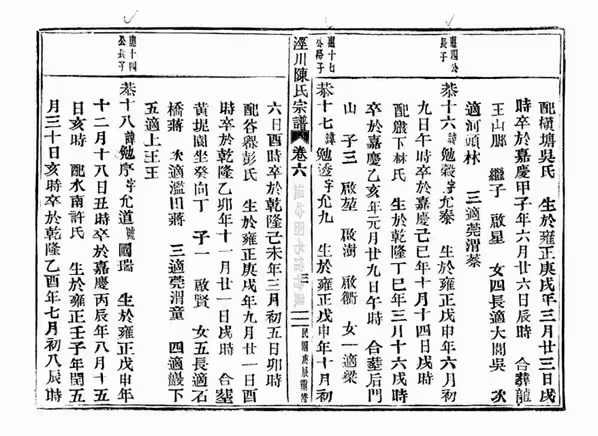 惠四公
長子
配橫塘吳氏 生於雍正庚戌年三月廿三日戌
時卒於嘉慶甲子年六月廿六日辰時 合葬龍
王山鄢 繼子 啟星 女四長適大閣吳 次
適河頭林 三適莞渭蔡
恭十六諱勉毅字允泰 生於雍正戊申年六月初
九日午時卒於嘉慶己巳年十月十四日戌時
配殿下林氏 生於乾隆丁巳年三月十六戌時
卒於嘉慶乙亥年元月廿九日午時 合葬后門
山 子三 啟堃 啟澍 啟衢 女一適梁
惠十七
公長子
恭十七諱勉透字允九 生於雍正戊申年十月初
涇川陳氏宗譜 卷六 三
六日酉時卒於乾隆己未年三月初五日卯時
配谷嶴彭氏 生於雍正庚戌年九月廿一日戌
時卒於乾隆乙卯年十一月廿一日戌時 合葬
黃坭園坐癸向丁 子一 啟賢 女五長適石
橋蔣 次適濫田蔣 三適莞渭童 四適巖下
五適上王王
惠十四
公長子
恭十八諱勉序字允道號國瑞 生於雍正戊申年
十二月十八日丑時卒於嘉慶丙辰年八月十五
日亥時 配水南許氏 生於雍正壬子年閏五
月三十日亥時卒於乾隆乙酉年七月初八辰時